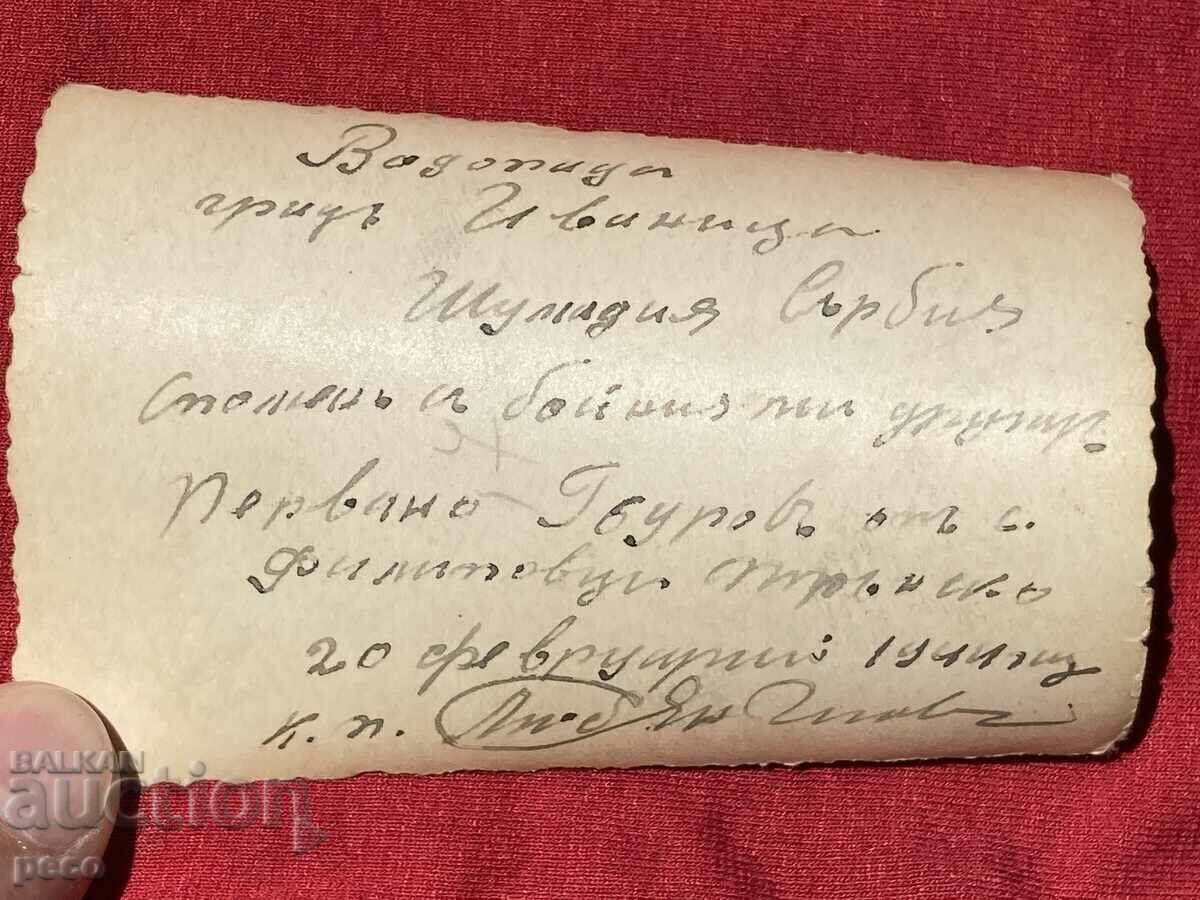 Водопада
градъ Иваница
Шумадия Сърбия
Споменъ съ бойния ми другар
Първано Гюровъ отъ с.
Филиповци Трънско
20 февруарий 1944 год
к.п. Люб
BALKAN
auction
peco